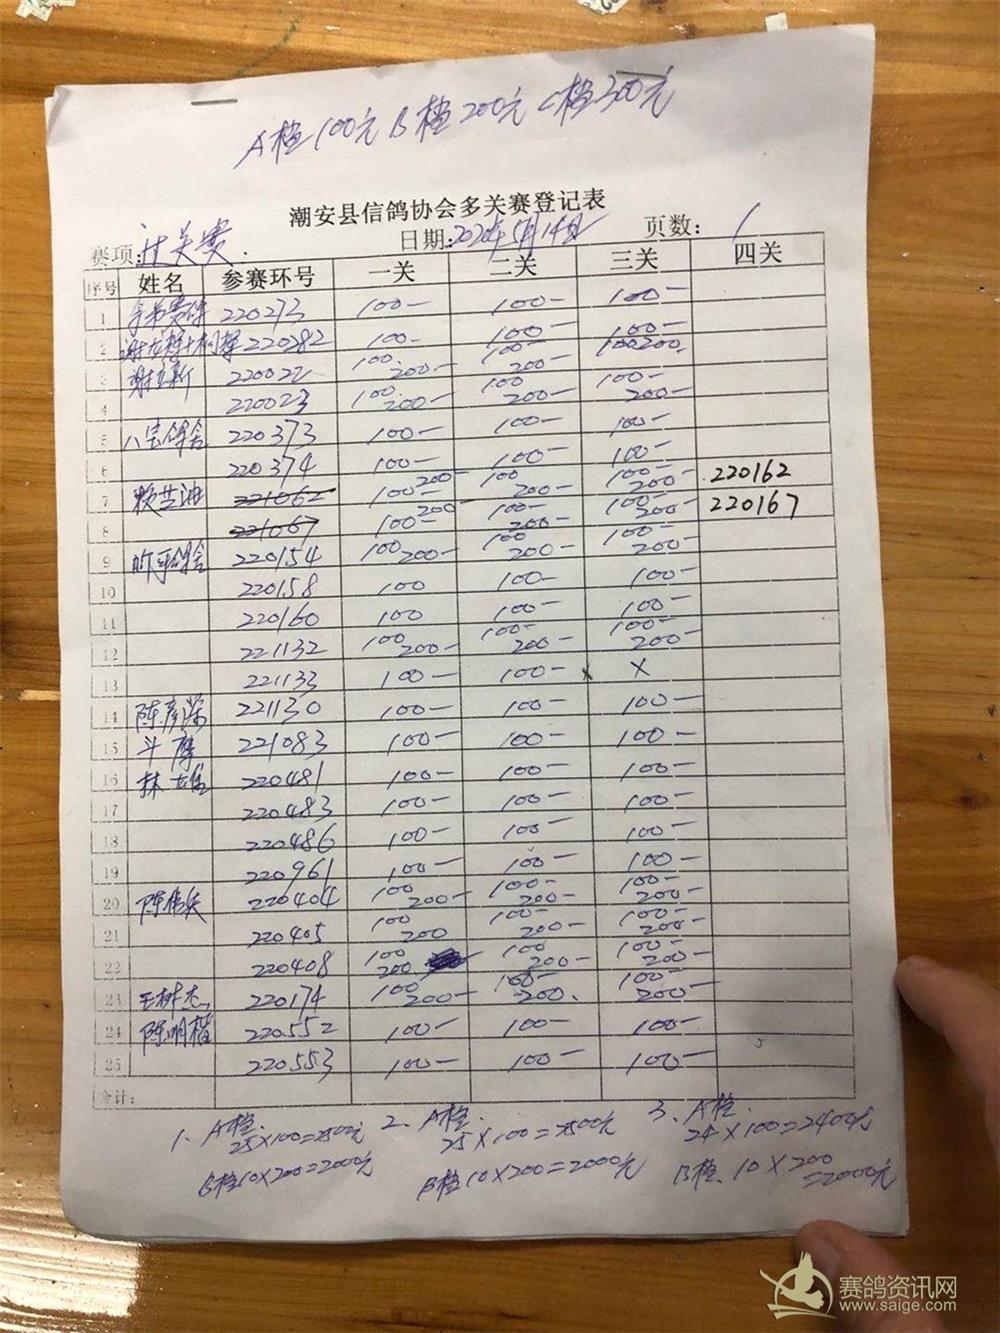 A档100元 B档200元 C档300元
潮安县信鸽协会多关赛登记表
赛项: 过关赛 日期: 2020年5月14日 页数: 1
序号 姓名 参赛环号 一关 二关 三关 四关
1 220273 100- 100- 100-
2 220282 100- 100- 100-
3 220022 100 200- 100- 200 100 200-
4 220023 100 200- 100 200- 100- 200-
5 八宝鸽舍 220373 100- 100- 100-
6 220374 100- 100- 100-
7 221062 100- 200 100 200- 100- 200 220162
8 221067 100- 200- 100- 200- 100- 200- 220167
9 鸽舍 220154 100 200- 100 200- 100- 200-
10 220158 100 100- 100-
11 220160 100 100- 100-
12 221132 100 200- 100- 200- 100- 200-
13 221133 100- 100- × ×
14 陈彦深 221130 100- 100- 100-
15 221083 100- 100- 100-
16 林雄 220481 100- 100- 100-
17 220483 100- 100- 100-
18 220486 100- 100- 100-
19 220961 100- 100- 100-
20 220404 100 200- 100- 200- 100- 200-
21 220405 100 200 100- 200- 100- 200-
22 220408 100 200 100 200- 100- 200-
23 王树杰 220174 100 200- 100- 200. 100- 200-
24 陈明楷 220552 100- 100- 100-
25 220553 100- 100- 100-
合计:
1、A档. 25×100=2500元 2、A档. 25×100=2500元 3、A档. 24×100=2400元
B档10×200=2000元 B档10×200=2000元 B档. 10×200=2000元
赛鸽资讯网
www.saige.com